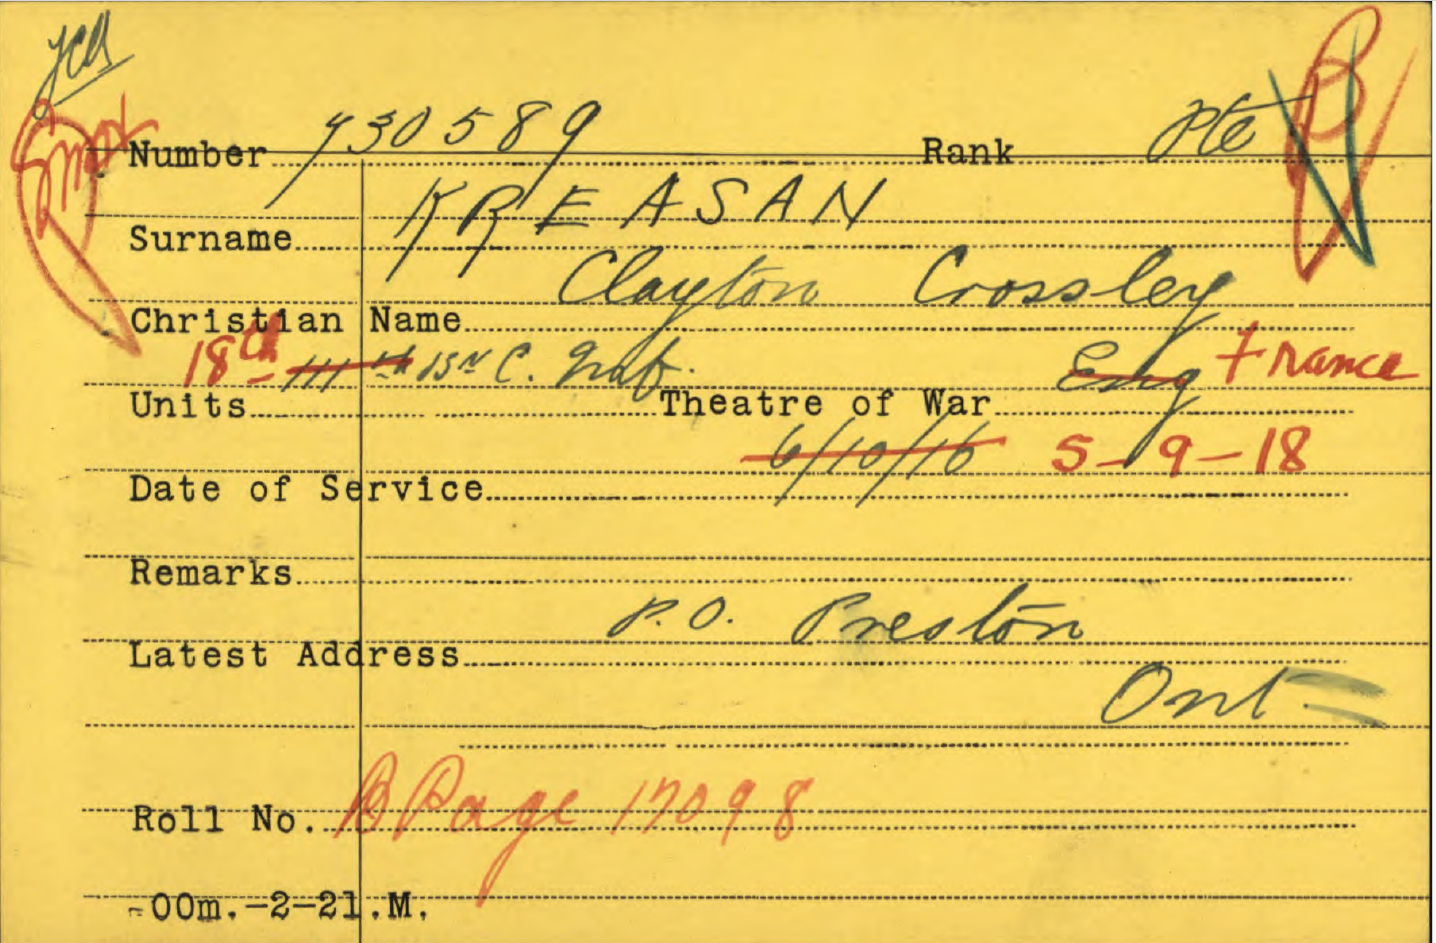 Number 730589 Rank Pte
Surname KREASAN
Christian Name Clayton Crossley
Units 18th 111th BN C. Inf. Theatre of War Eng France
Date of Service 6/10/16 5-9-18
Remarks
Latest Address P.O. Preston
Ont
Roll No. B Page 17098
-00m.-2-21.M.